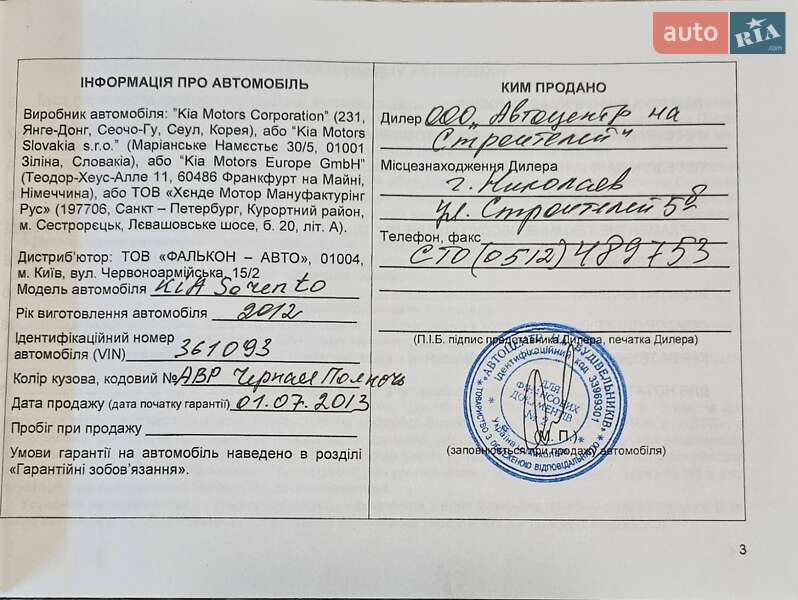 auto RIA .com
ІНФОРМАЦІЯ ПРО АВТОМОБІЛЬ
Виробник автомобіля: "Kia Motors Corporation" (231,
Янге-Донг, Сеочо-Гу, Сеул, Корея), або "Kia Motors
Slovakia s.r.o." (Маріанське Намєстьє 30/5, 01001
Зіліна, Словакія), або "Kia Motors Europe GmbH"
(Теодор-Хеус-Алле 11, 60486 Франкфурт на Майні,
Німеччина), або ТОВ «Хєнде Мотор Мануфактурінг
Рус» (197706, Санкт – Петербург, Курортний район,
м. Сестрорєцьк, Лєвашовське шосе, б. 20, літ. А).
Дистриб'ютор: ТОВ «ФАЛЬКОН – АВТО», 01004,
м. Київ, вул. Червоноармійська, 15/2
Модель автомобіля KIA Sorento
Рік виготовлення автомобіля 2012
Ідентифікаційний номер
автомобіля (VIN) 361093
Колір кузова, кодовий № ABP Черная Полночь
Дата продажу (дата початку гарантії) 01.07.2013
Пробіг при продажу
Умови гарантії на автомобіль наведено в розділі
«Гарантійні зобов'язання».
КИМ ПРОДАНО
Дилер ООО „Автоцентр на
Строителей"
Місцезнаходження Дилера
г. Николаев
ул. Строителей 5а
Телефон, факс
СТО (0512) 489753
(П.І.Б. підпис представника Дилера, печатка Дилера)
АВТОЦЕНТР НА БУДІВЕЛЬНИКІВ
ТОВАРИСТВО З ОБМЕЖЕНОЮ ВІДПОВІДАЛЬНІСТЮ
Ідентифікаційний код 33969301
ДЛЯ
ФІНАНСОВИХ
ДОКУМЕНТІВ
№ 2
Україна
(М. П.)
(заповнюється при продажу автомобіля)
3